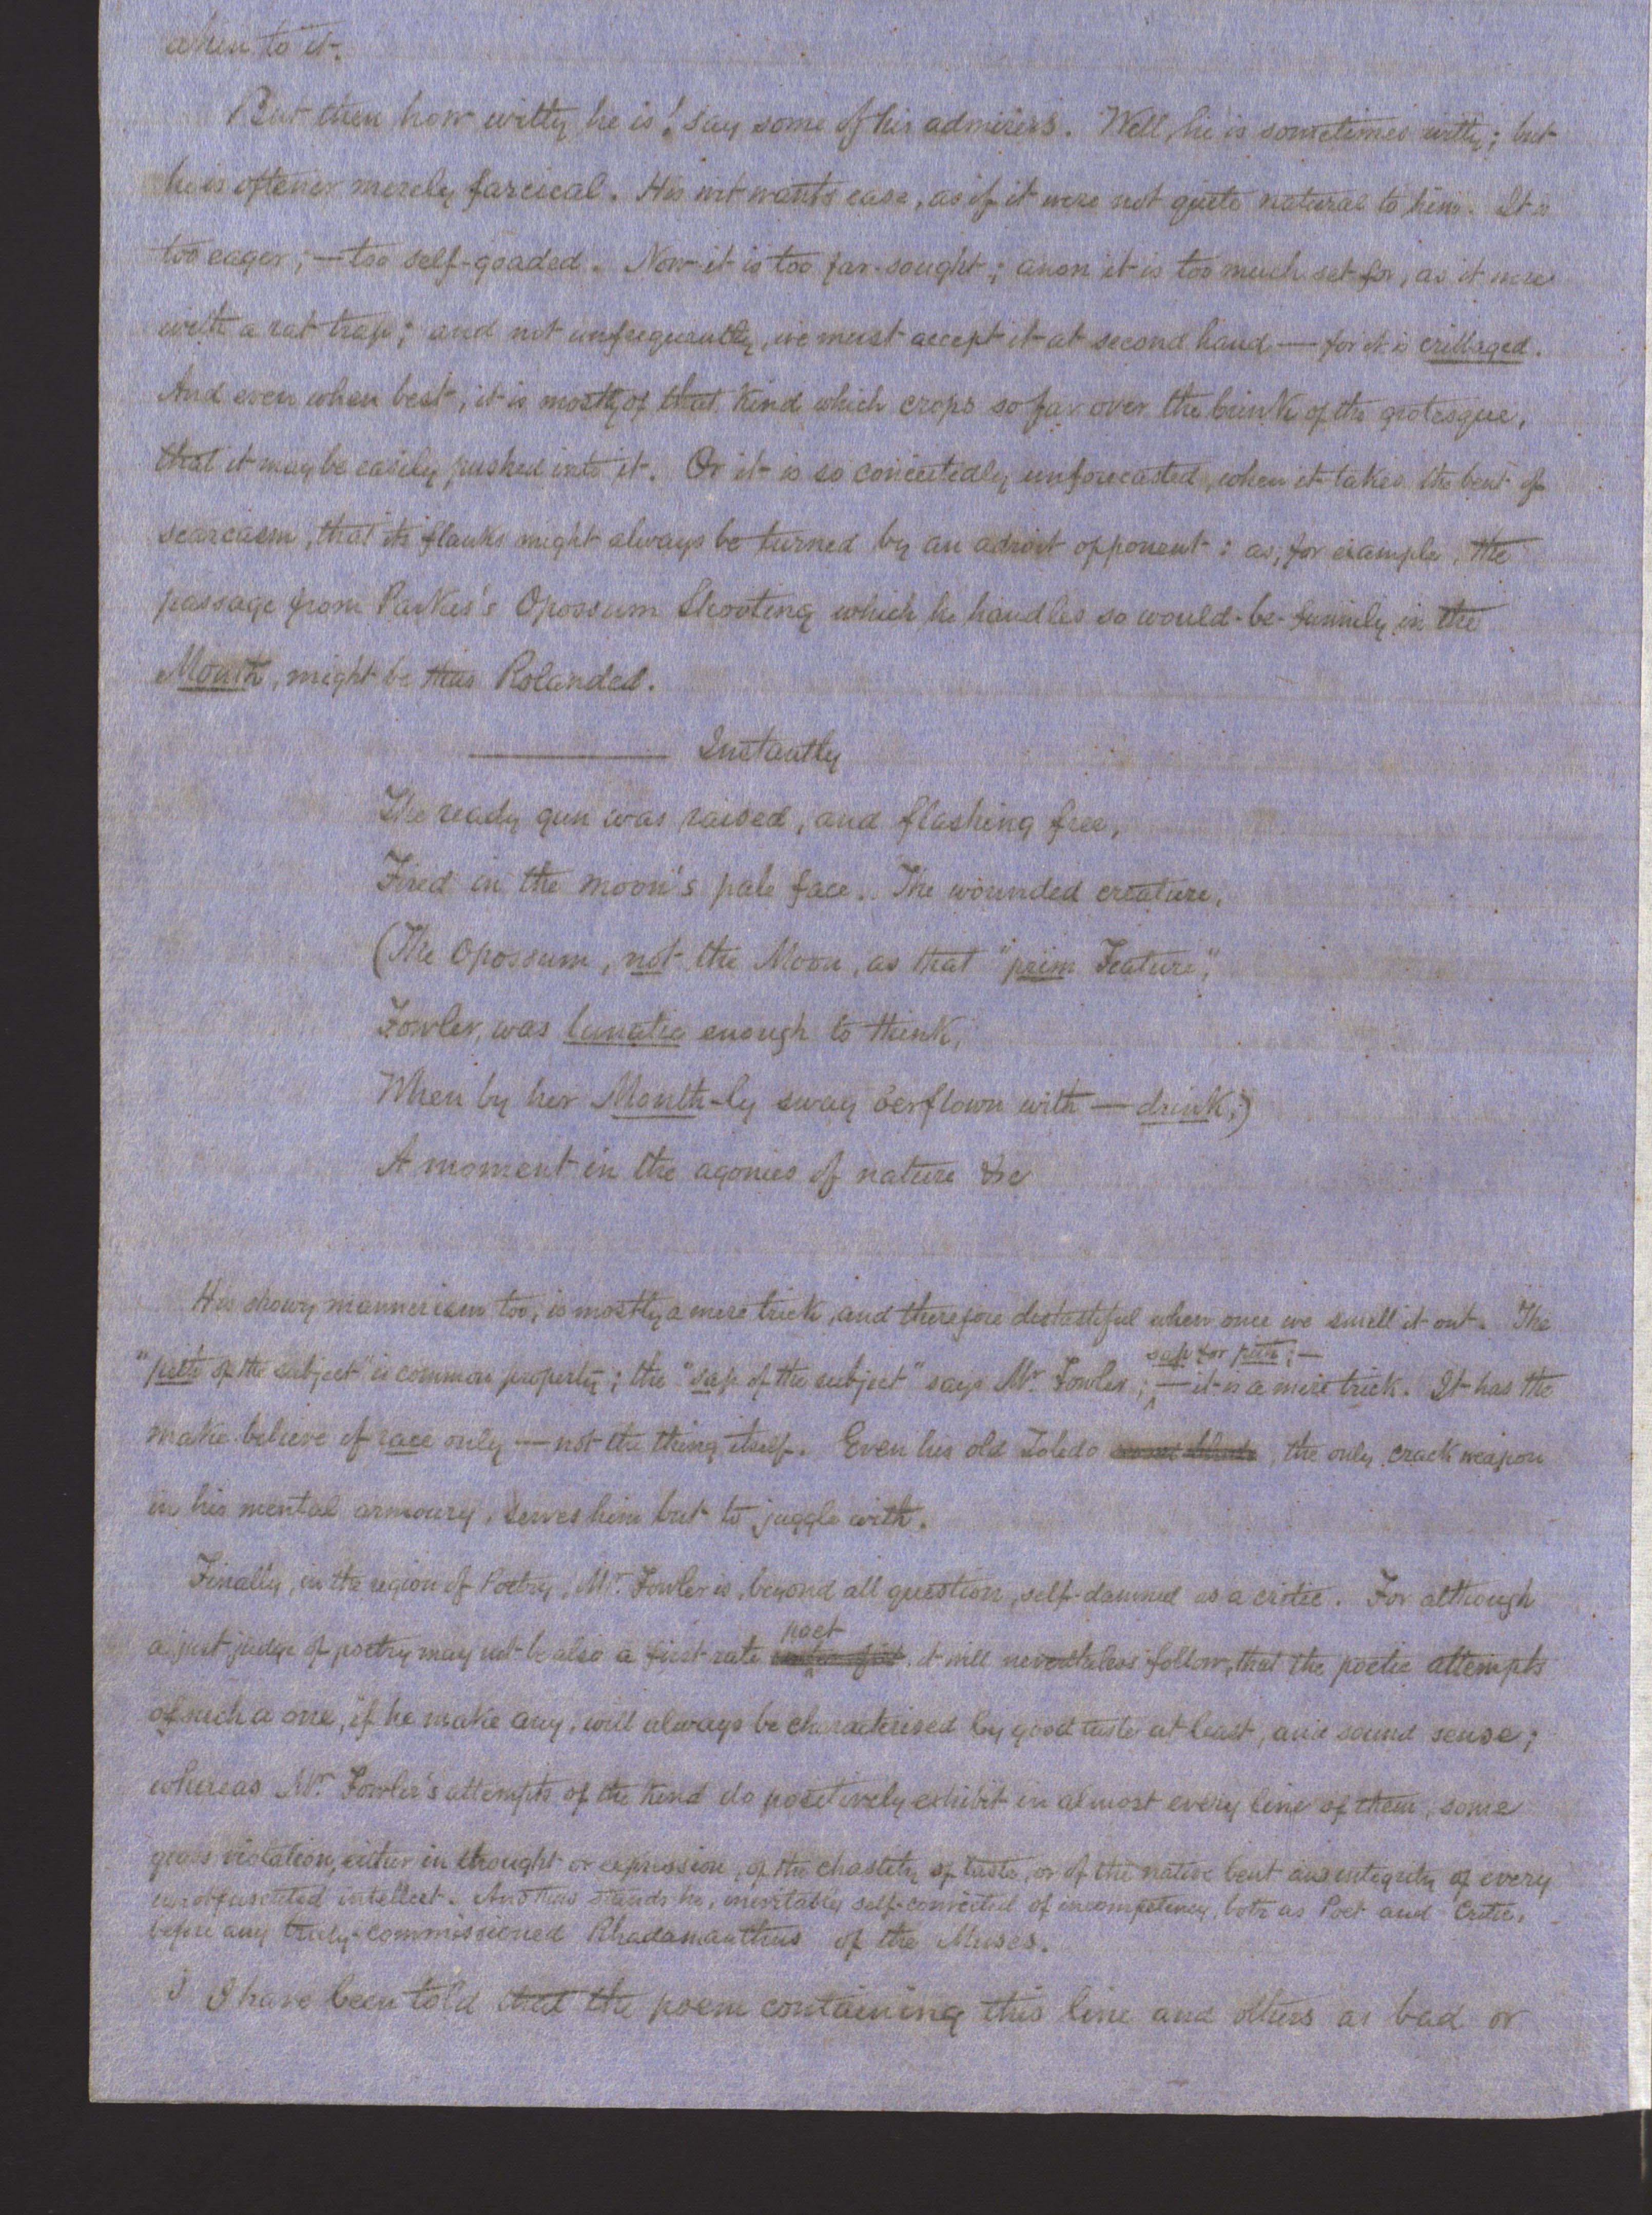 when to it.
But then how witty he is! say some of his admirers. Well, he is sometimes witty; but
he is oftener merely farcical. His wit wants ease, as if it were not quite natural to him. It is
too eager; — too self-goaded. Now it is too far-sought; anon it is too much set for, as it were
with a rat trap; and not unfrequently, we must accept it at second hand — for it is cribbaged.
And even when best, it is mostly of that kind which crops so far over the brink of the grotesque,
that it may be easily pushed into it. Or it is so conceitedly unforecasted, when it takes the bent of
scarcasm, that its flanks might always be turned by an adroit opponent: as, for example, the
passage from Parkes's Opossum Shooting which he handles so would-be-funnily in the
Month, might be thus Rolanded.
——— Instantly
The ready gun was raised, and flashing free,
Fired in the moon's pale face. The wounded creature,
(The Opossum, not the Moon, as that "prim Feature",
Fowler, was lunatic enough to think,
When by her Month-ly sway o'erflown with — drink;)
A moment in the agonies of nature &c
His showy mannerism too, is mostly a mere trick, and therefore distasteful when once we smell it out. The
sap for pith; —
"pith of the subject" is common property; the "sap of the subject" says Mr. Fowler; — it is a mere trick. It has the
make-believe of race only — not the thing itself. Even his old Toledo, the only crack weapon
in his mental armoury, serves him but to juggle with.
Finally, in the region of Poetry, Mr. Fowler is, beyond all question, self-damned as a critic. For although
poet
a just judge of poetry may not be also a first rate, it will nevertheless follow, that the poetic attempts
of such a one, if he make any, will always be characterised by good taste at least, and sound sense;
whereas Mr. Fowler's attempts of the kind do positively exhibit in almost every line of them, some
gross violation, either in thought or expression, of the chastity of taste, or of the native bent and integrity of every
unobfuscated intellect. And thus stands he, inevitably self-convicted of incompetency, both as Poet and Critic,
before any truly-commissioned Rhadamanthus of the Muses.
I have been told that the poem containing this line and others as bad or